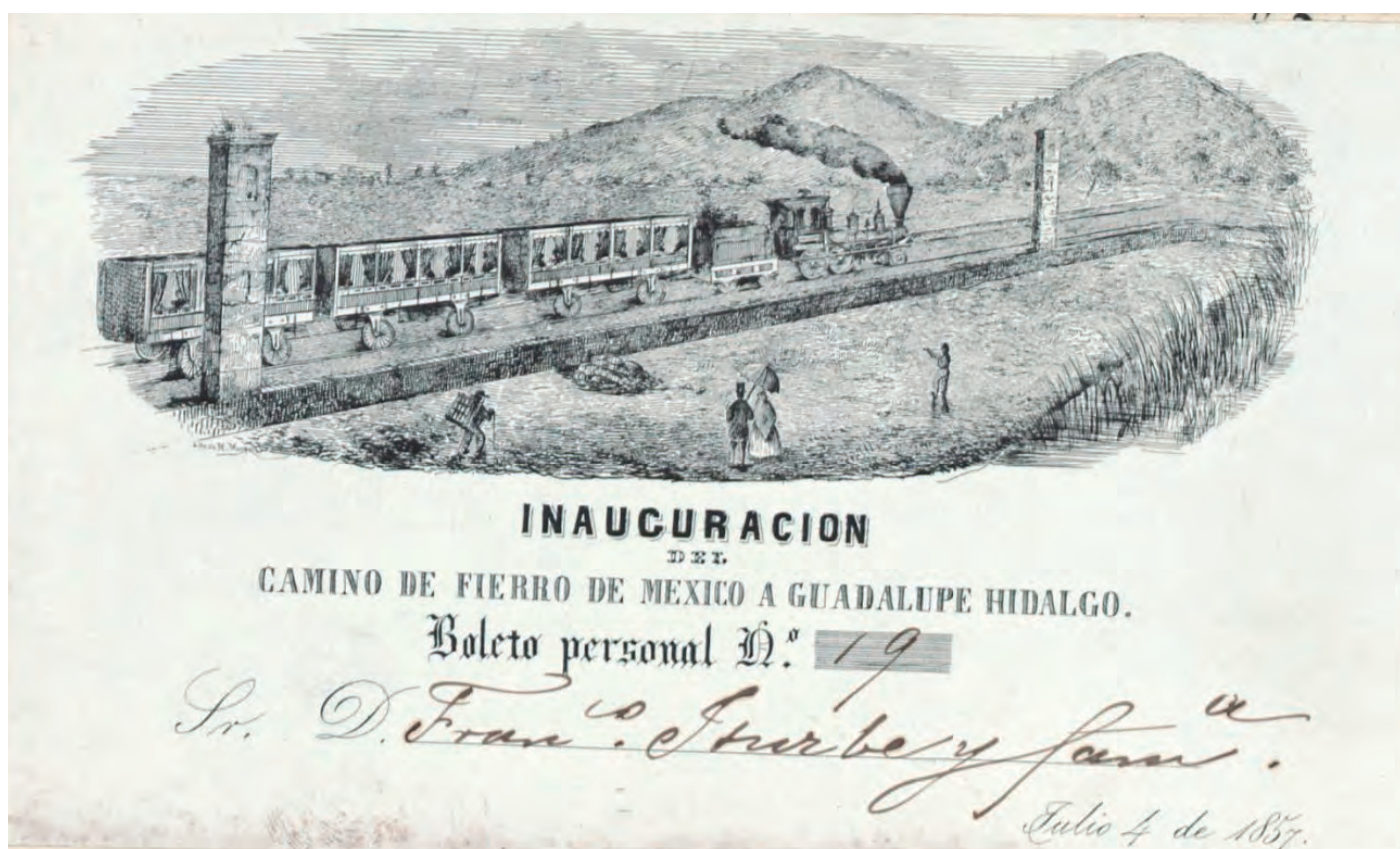 INAUGURACION
DEL
CAMINO DE FIERRO DE MEXICO A GUADALUPE HIDALGO.
Boleto personal N.º 19
Sr. D. Franco. Iturbe y fama.
Julio 4 de 1857.